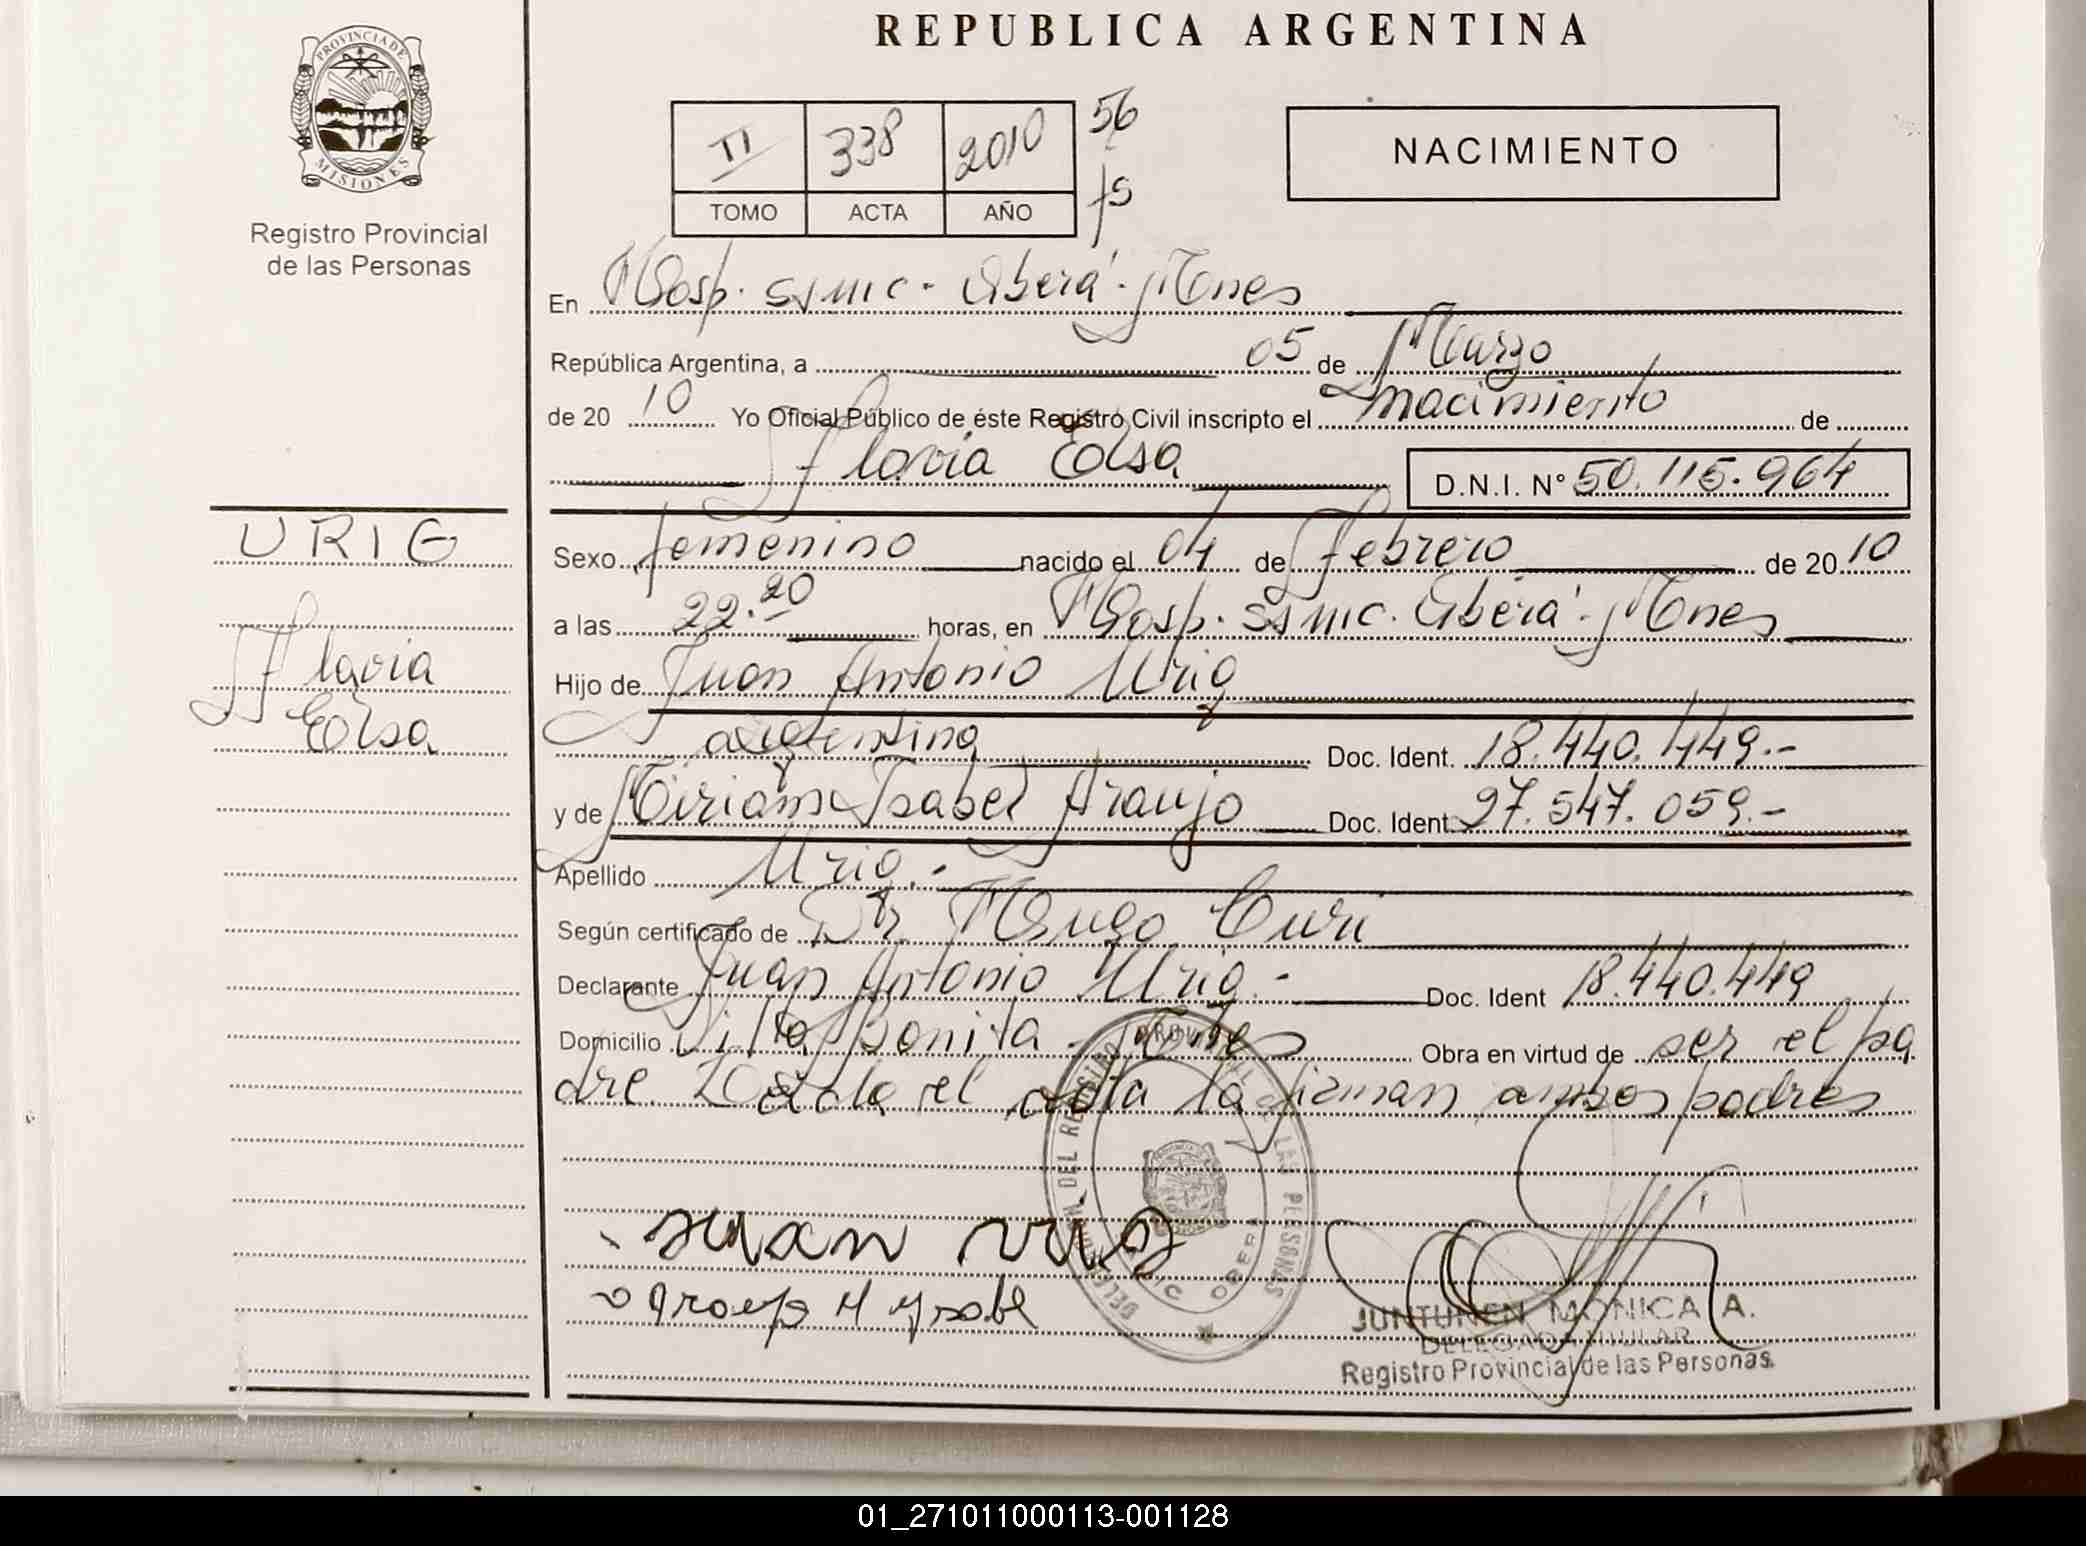 REPUBLICA ARGENTINA
PROVINCIA DE
MISIONES
Registro Provincial
de las Personas
II 338 2010 56
TOMO ACTA AÑO fs
NACIMIENTO
En Hosp. SSMC. Oberá. Mnes
República Argentina, a 05 de Marzo
de 20 10 Yo Oficial Público de éste Registro Civil inscripto el nacimiento de
Flavia Elsa D.N.I. N° 50.115.964
URIG
Flavia
Elsa
Sexo femenino nacido el 04 de Febrero de 20 10
a las 22.20 horas, en Hosp. SSMC. Oberá. Mnes
Hijo de Juan Antonio Urig
argentina Doc. Ident. 18.440.449.-
y de Miriam Isabel Araujo Doc. Ident. 27.547.059.-
Apellido Urig.-
Según certificado de Dr. Hugo Curi
Declarante Juan Antonio Urig.- Doc. Ident 18.440.449
Domicilio Villa Bonita - Mnes Obra en virtud de ser el pa
dre. Leída el acta la firman ambos padres
juan urig
JUNTUNEN MONICA A.
DELEGADA TITULAR
Registro Provincial de las Personas
01_271011000113-001128